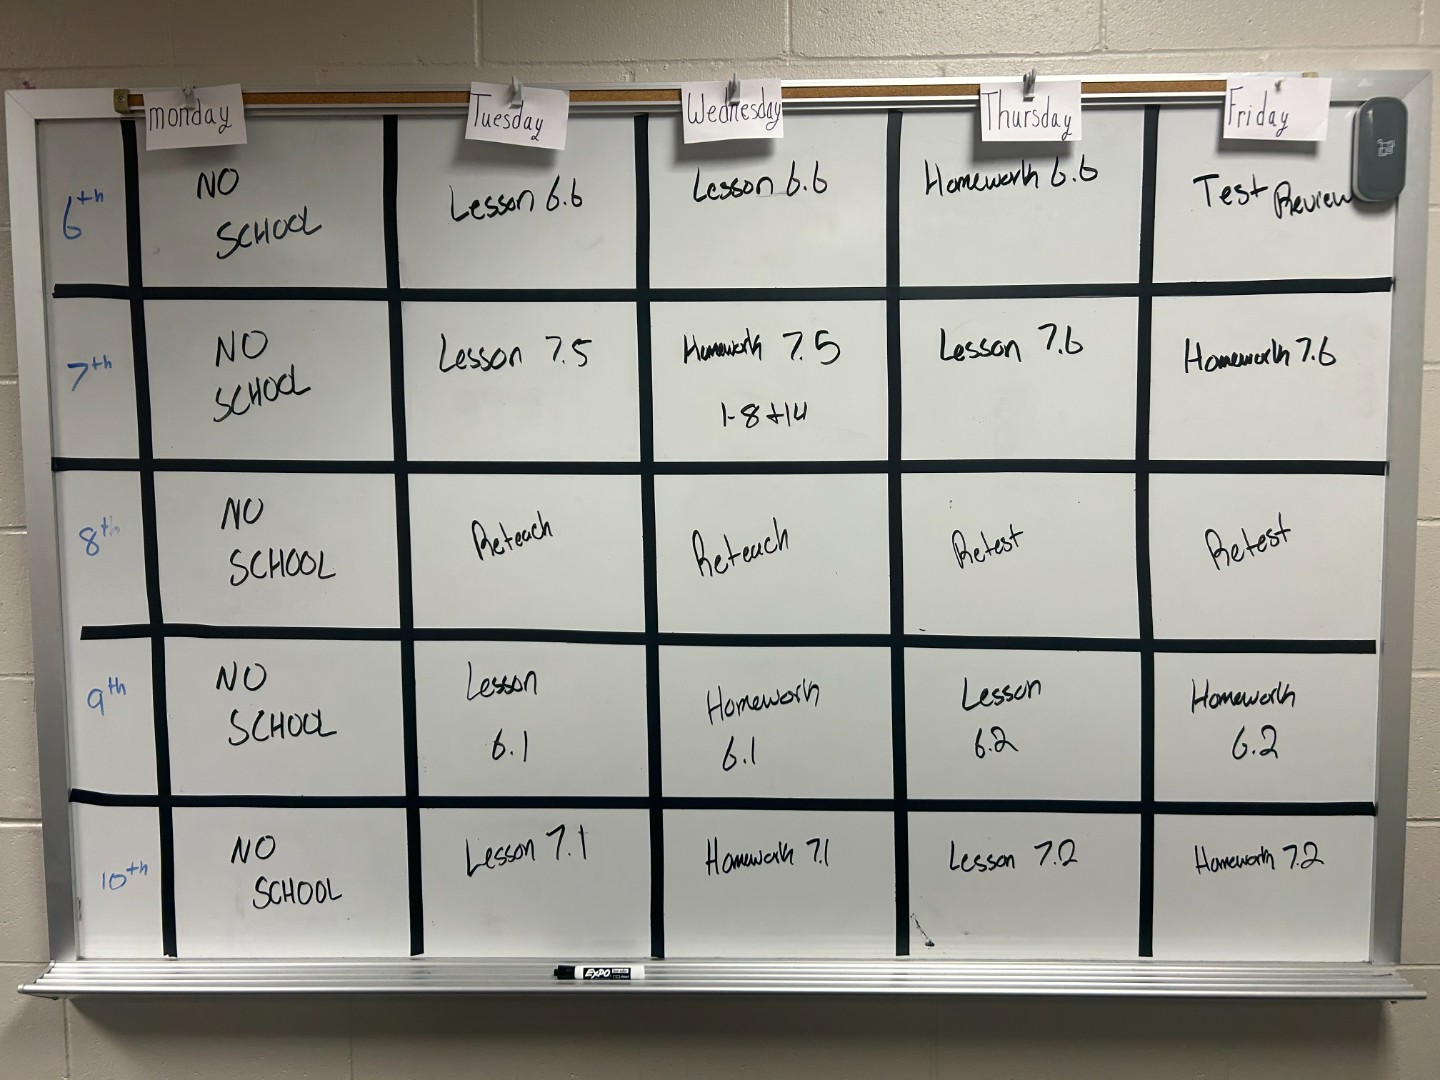 monday
Tuesday
Wednesday
Thursday
Friday
6th
NO
SCHOOL
Lesson 6.6
Lesson 6.6
Homework 6.6
Test Review
7th
NO
SCHOOL
Lesson 7.5
Homework 7.5
1-8 + 14
Lesson 7.6
Homework 7.6
8th
NO
SCHOOL
Reteach
Reteach
Retest
Retest
9th
NO
SCHOOL
Lesson
6.1
Homework
6.1
Lesson
6.2
Homework
6.2
10th
NO
SCHOOL
Lesson 7.1
Homework 7.1
Lesson 7.2
Homework 7.2
EXPO